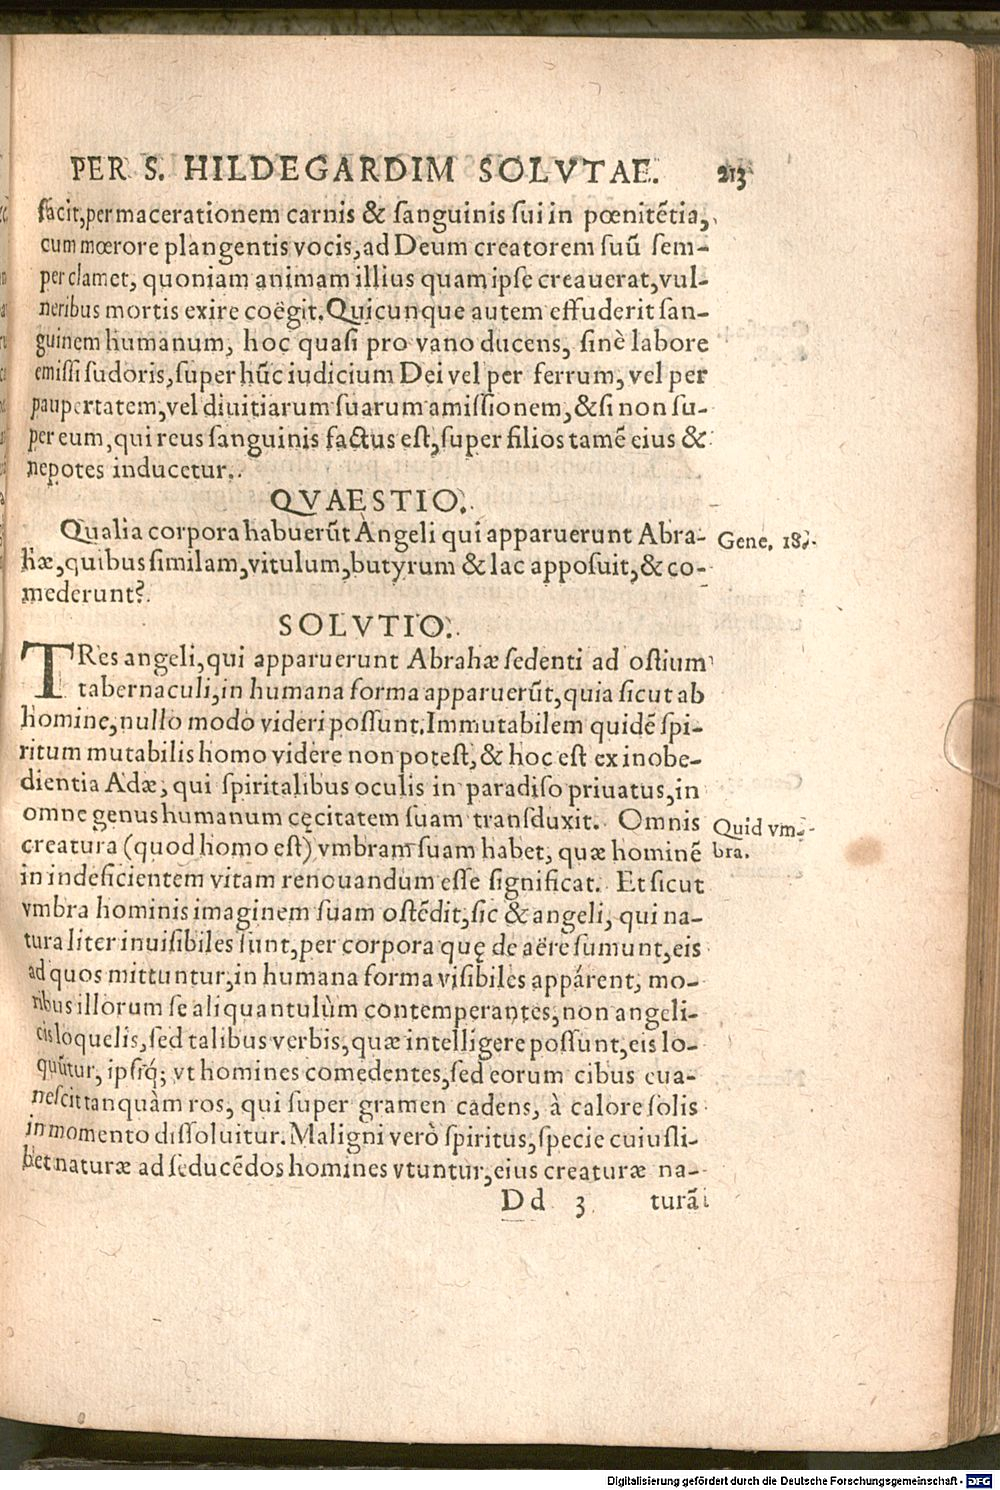 PER S. HILDEGARDIM SOLVTAE. 213
facit, per macerationem carnis & sanguinis sui in pœnitẽtia,
cum mœrore plangentis vocis, ad Deum creatorem suũ sem-
per clamet, quoniam animam illius quam ipse creauerat, vul-
neribus mortis exire coëgit. Quicunque autem effuderit san-
guinem humanum, hoc quasi pro vano ducens, sinè labore
emissi sudoris, super hũc iudicium Dei vel per ferrum, vel per
paupertatem, vel diuitiarum suarum amissionem, & si non su-
per eum, qui reus sanguinis factus est, super filios tamẽ eius &
nepotes inducetur.
QVAESTIO.
Qualia corpora habuerũt Angeli qui apparuerunt Abra-
hæ, quibus similam, vitulum, butyrum & lac apposuit, & co-
mederunt?
Gene. 18.
SOLVTIO.
TRes angeli, qui apparuerunt Abrahæ sedenti ad ostium
tabernaculi, in humana forma apparuerũt, quia sicut ab
homine, nullo modo videri possunt. Immutabilem quidẽ spi-
ritum mutabilis homo videre non potest, & hoc est ex inobe-
dientia Adæ, qui spiritalibus oculis in paradiso priuatus, in
omne genus humanum cęcitatem suam transduxit. Omnis
creatura (quod homo est) vmbram suam habet, quæ hominẽ
in indeficientem vitam renouandum esse significat. Et sicut
vmbra hominis imaginem suam ostẽdit, sic & angeli, qui na-
turaliter inuisibiles sunt, per corpora quę de aëre sumunt, eis
ad quos mittuntur, in humana forma visibiles apparent, mo-
ribus illorum se aliquantulùm contemperantes, non angeli-
cis loquelis, sed talibus verbis, quæ intelligere possunt, eis lo-
quũtur, ipsíq́; vt homines comedentes, sed eorum cibus eua-
nescit tanquàm ros, qui super gramen cadens, à calore solis
in momento dissoluitur. Maligni verò spiritus, specie cuiusli-
bet naturæ ad seducẽdos homines vtuntur, eius creaturæ na-
Quid vm-
bra.
Dd 3 turã
Digitalisierung gefördert durch die Deutsche Forschungsgemeinschaft - DFG